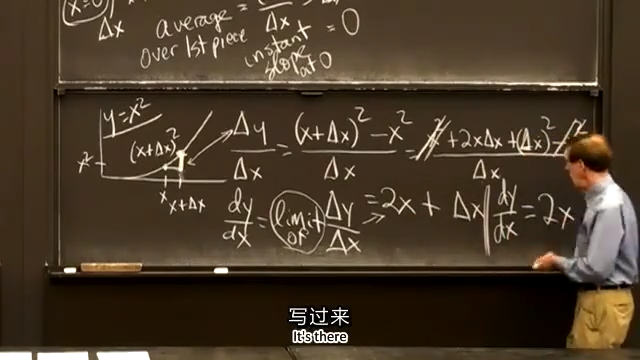 x=0
Δx
average
Δx = 0
over 1st piece
instant
slope
at 0
y=x²
(x+Δx)²
x²
x
x+Δx
Δy/Δx = ((x+Δx)²-x²)/Δx = (x²+2xΔx+(Δx)²-x²)/Δx
dy/dx = limit of Δy/Δx → = 2x + Δx
dy/dx = 2x
写过来
It's there